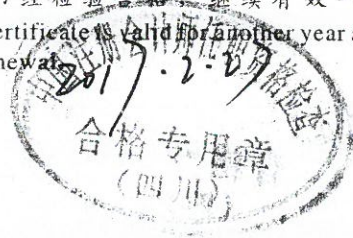 经检验合格,继续有效一
ertificate is valid for another year a
newal.
2017.2.27
中国注册会计师任职资格检查
合格专用章
(四川)